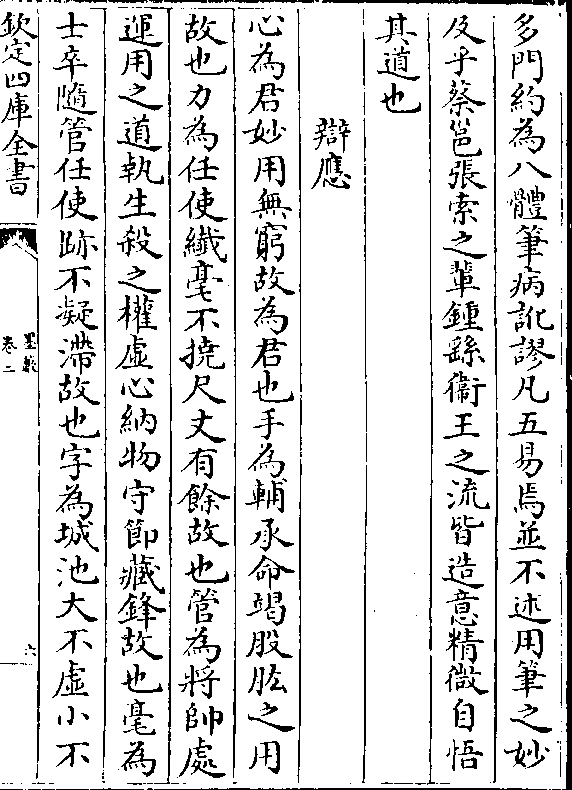 多門約為八體筆病訛謬凡五易焉並不述用筆之妙
及乎蔡邕張索之輩鍾繇衞王之流皆造意精微自悟
其道也
辯應
心為君妙用無窮故為君也手為輔承命竭股肱之用
故也力為任使纎毫不撓尺丈有餘故也管為將帥處
運用之道執生殺之權虚心納物守節藏鋒故也毫為
士卒隨管任使跡不凝滯故也字為城池大不虚小不
欽定四庫全書
墨藪
卷二
六